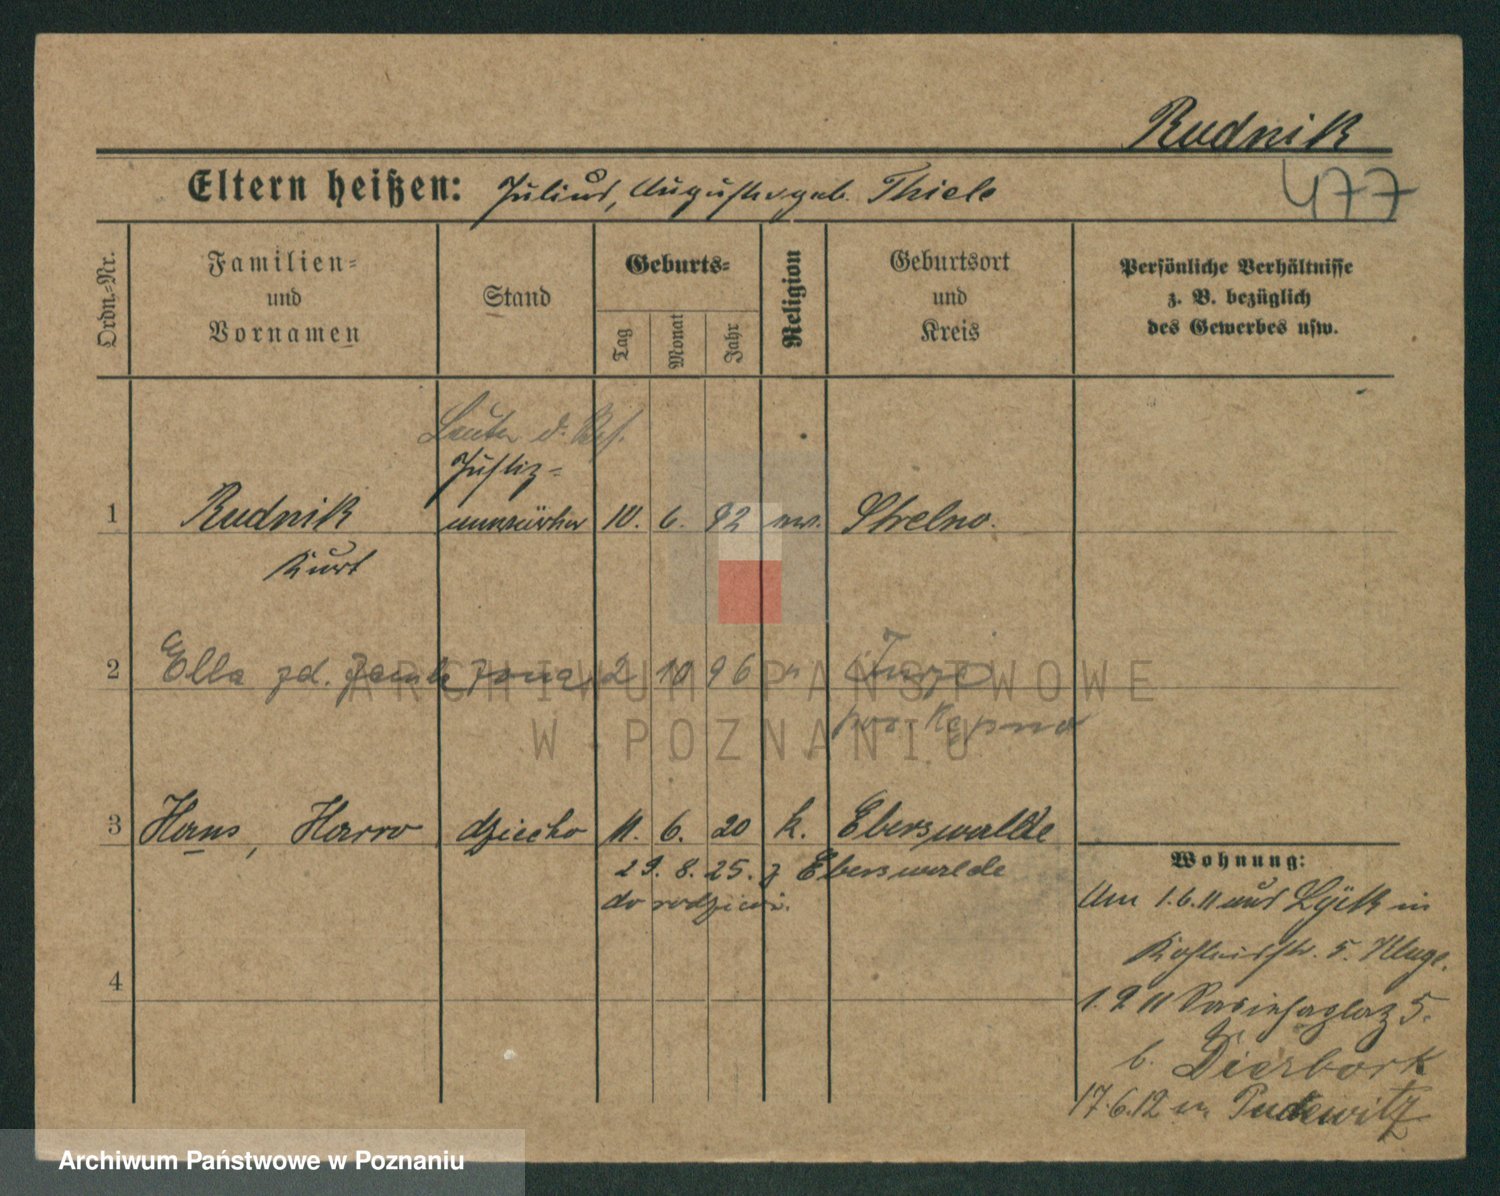 Rudnik
477
Eltern heißen: Julius, Auguste geb. Thiele
Ordn.-Nr.
Familien-
und
Vornamen
Stand
Geburts-
Tag
Monat
Jahr
Religion
Geburtsort
und
Kreis
Persönliche Verhältnisse
z. B. bezüglich
des Gewerbes usw.
Leutn. d. Res.
Justiz-
1 Rudnik anwärter 10. 6. 92 ew. Strelno.
Kurt
2 Ella zd. 2 10 96
3 Hans, Harro dziecko 11. 6. 20 k. Eberswalde
29. 8. 25. z Eberswalde
do rodziców.
4
Wohnung:
Am 1.6.11 aus Lyck in
5. Kluge.
1.9 11 5.
b. Dierbork
17.6.12 in Pudewitz
ARCHIWUM PAŃSTWOWE
W POZNANIU
Archiwum Państwowe w Poznaniu